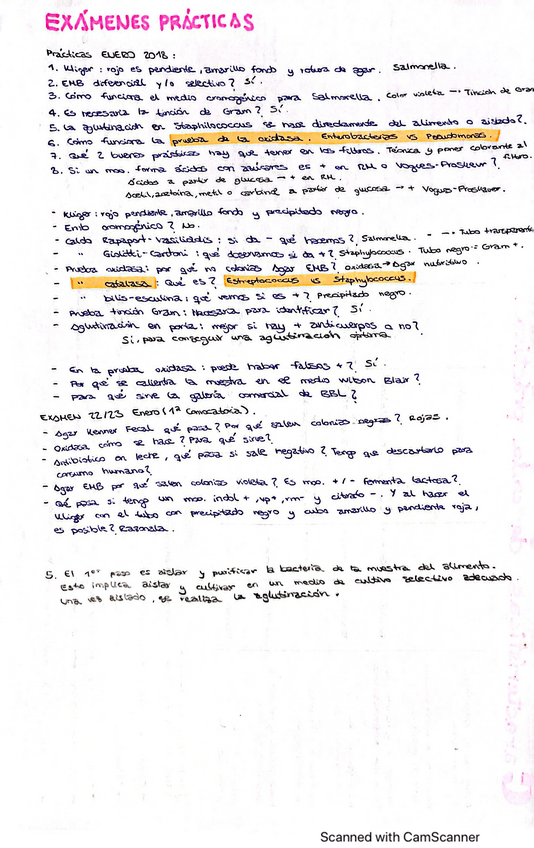 EXÁMENES PRÁCTICAS
Prácticas ENERO 2018:
1. Kliger: rojo es pendiente, amarillo fondo y rotura de agar. Salmonella.
2. EMB diferencial y/o selectivo? Sí.
3. Cómo funciona el medio cromogénico para Salmonella. Color violeta → Tinción de Gram
4. Es necesaria la tinción de Gram? Sí.
5. La aglutinación en Staphilococcus se hace directamente del alimento o aislado?
6. Cómo funciona la prueba de la oxidasa. Enterobacterias vs Pseudomonas.
7. Qué? buenas prácticas hay que tener en los filtros. Técnica y poner colorante al
8. Si un moo. forma ácidos con azúcares es + en RM o Vogues-Proskaver?
Ácidos a partir de glucosa → + en RM.
acetoína, metil o carbinol a partir de glucosa → + Vogus-Proskaver.
- Kliger: rojo pendiente, amarillo fondo y precipitado negro.
- Ento cromogénico? No.
- Caldo Rapaport-Vasiliadis: si da - qué hacemos? Salmonella. - → Tubo transparente
- " Giolitti-Cantoni: qué observamos si da +? Staphylococcus. Tubo negro = Gram +.
- Prueba oxidasa: por qué no colonias Agar EMB? oxidasa → Agar nutritivo.
- " catalasa: Qué es? Estreptococcus vs Staphylococcus.
- " bilis-esculina: qué vemos si es +? Precipitado negro.
- Prueba tinción Gram: Necesaria para identificar? Sí.
- Aglutinación en porta: mejor si hay + anticuerpos o no?
Si, para conseguir una aglutinación óptima
- En la prueba oxidasa: puede haber falsos +? Sí.
- Por qué se calienta la muestra en el medio Wilson Blair?
- Para qué sirve la galería comercial de BBL?
EXAMEN 22/23 Enero (1ª Convocatoria).
- Agar Kenner Fecal qué pasa? Por qué salen colonias negras? Rojas.
- Oxidasa cómo se hace? Para qué sirve?
- Antibiótico en leche, qué pasa si sale negativo? Tengo que descartarlo para
consumo humano?
- Agar EMB por qué salen colonias violeta? Es moo. +/- fomenta lactosa?
- Qué pasa si tengo un moo. indol +, vp+, rm- y citrato -. Y al hacer el
Kliger con el tubo con precipitado negro y cubo amarillo y pendiente roja,
es posible? Razonala.
5. El 1er paso es aislar y purificar la bacteria de la muestra del alimento.
Esto implica aislar y cultivar en un medio de cultivo selectivo adecuado.
Una vez aislado, se realiza la aglutinación.
Scanned with CamScanner